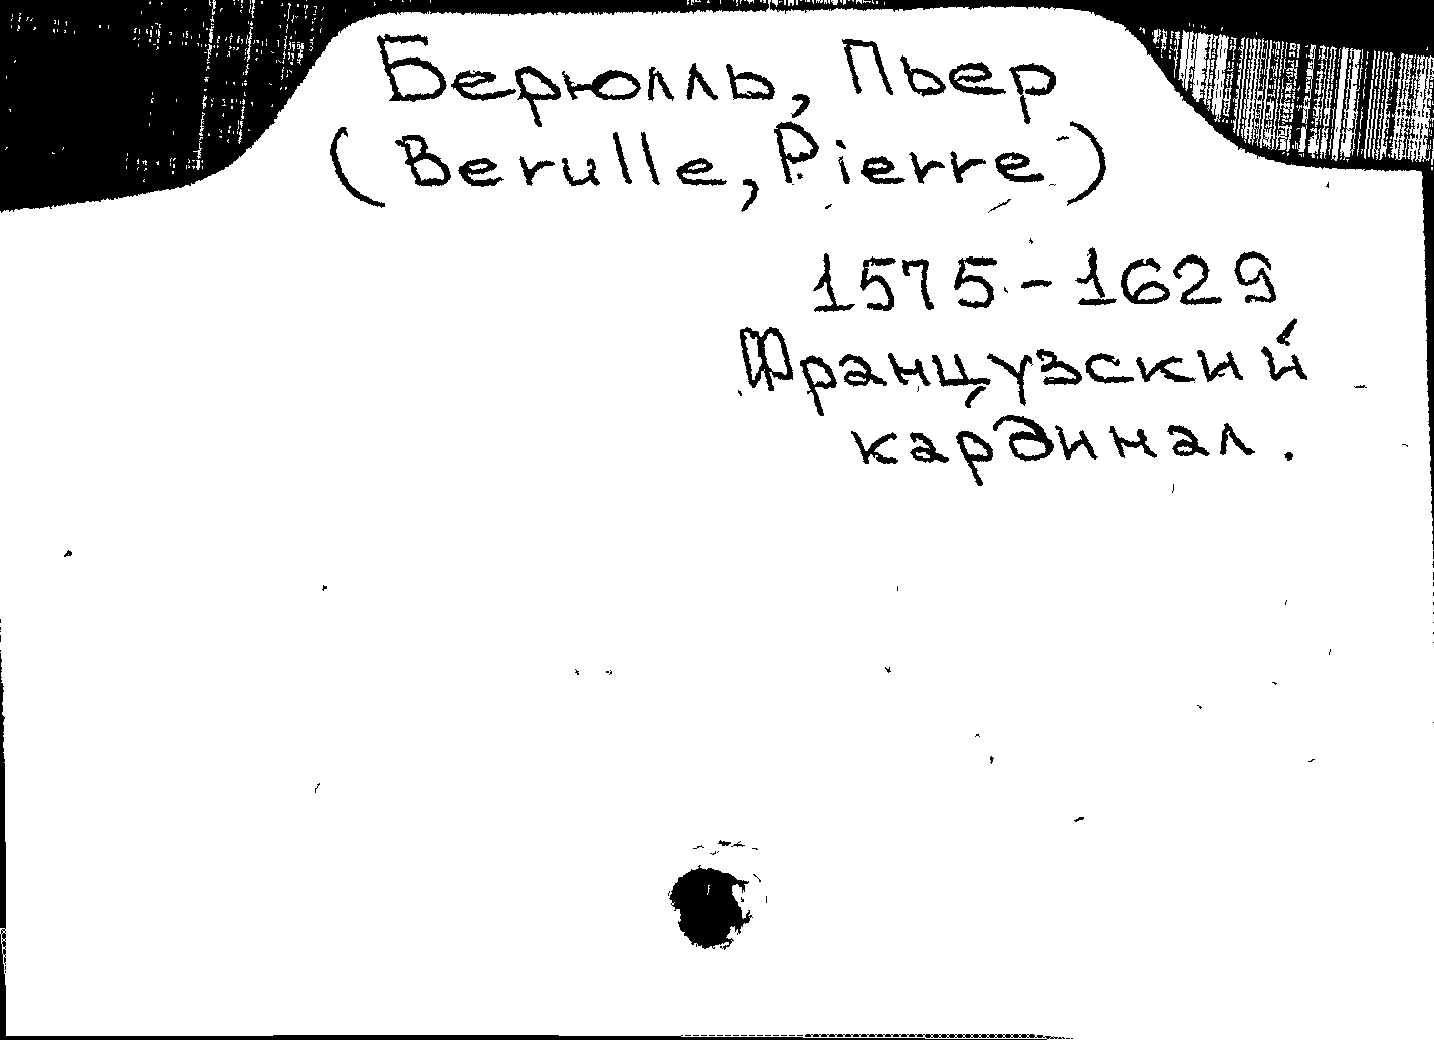 Берюлль, Пьер
(Berulle, Pierre)
1575-1629
Французский
кардинал.